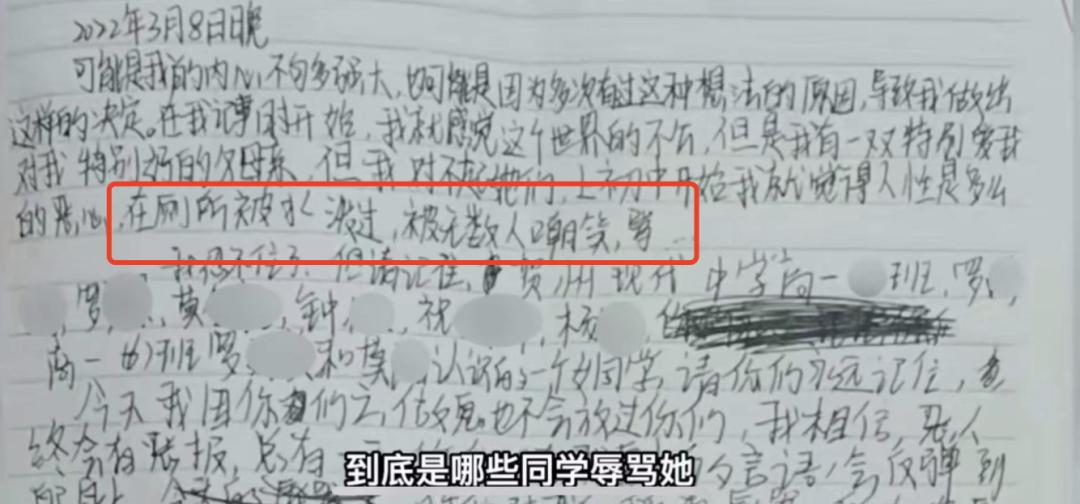 2022年3月8日晚
可能是我的内心不够强大,也可能是因为多次有过这种想法的原因,导致我做出
这样的决定。在我记事开始,我就感觉这个世界的不公,但是我有一双特别爱我
对我特别好的父母亲,但我对不起她们,上初中开始我就觉得人性是多么
的恶心,在厕所被水泼过,被无数人嘲笑,骂
我忍不住了,但请记住,贺州现代中学高一 班,罗
,罗 ,莫 ,钟 ,祝 ,杨 ,
高一 班罗 和莫 认识的一个女同学,请你们永远记住,
今天我因你们 ,做鬼也不会放过你们,我相信,恶人
终会有恶报,总有 言语,会反弹到
到底是哪些同学辱骂她